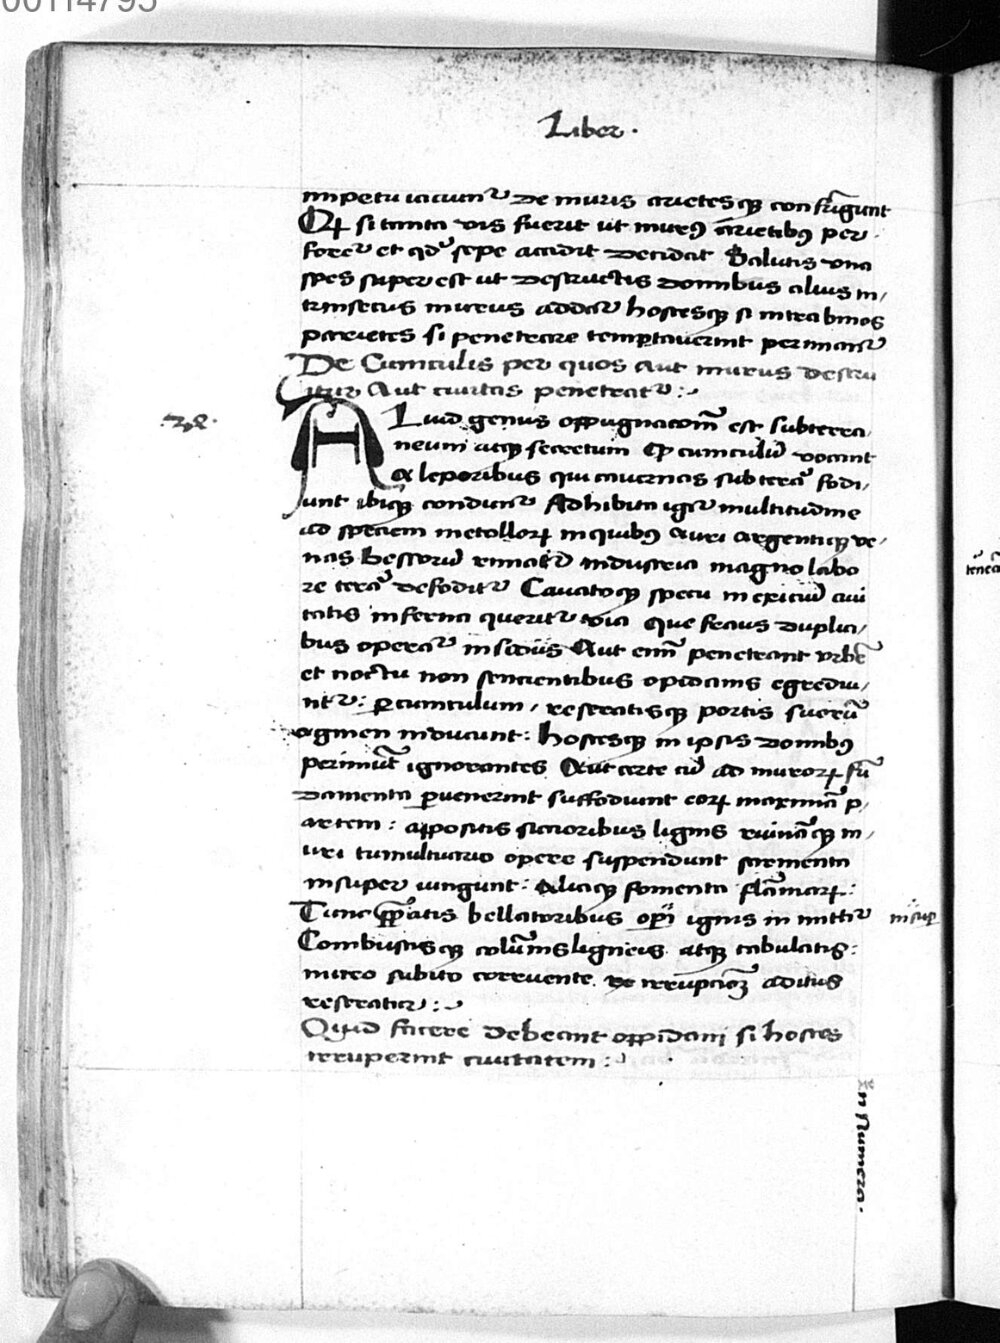 00114795
Liber ·
impetu iaciunt᷑ de muris arietesqꝫ confrīgunt
Qꝫ si tanta vis fuerit ut murꝯ arietibꝯ per
foret᷑ et qđ sepe accidit decidat Salutis vna
spes superest ut destructis domibus alius in/
trinsecus murus addat᷑ hostesqꝫ si intra binos
parietes si penetrare temptauerint perimant᷑
De Cuniculis per quos aut murus destru
itur Aut ciuitas penetrat᷑ :
ALiud genus oppugnacōm̄ est subterra
neum atqꝫ secretum Qꝫ cuniculū vocant
A leporibus qui cauernas sub terā fodi/
unt ibiqꝫ condunt᷑ Adhibita igit᷑ multitudine
ad speciem metalloꝝ in quibꝯ auri argentiqꝫ ve/
nas Bessorū rimat᷑ industria magno labo
re terā defodit᷑ Cauatoqꝫ specu in exiciū ciui
tatis inferna querit᷑ via que fraus dupliai/
bus operat᷑ insidiis Aut enī penetrant vrbē
et noctu non sencientibus opidanis egrediu/
nt᷑ : ꝑ cuniculum / reseratisqꝫ portis suorū
agmen inducunt : hostesqꝫ in ipsis domibꝯ
perimūt ignorantes Aut certe cū ad muroꝝ fū
damenta ꝑuenerint suffodiunt eoꝝ maximā p/
artem : appositis siccioribus lignis ruināqꝫ m/
uri tumultuario opere suspendunt sarmenta
insuper iungunt : Aliaqꝫ fomenta flāmaꝝ :
Tunc p̄patis bellatoribus opī ignis in mittit᷑ insup
Combustisqꝫ colūnis ligneis atqꝫ tabulatis :
muro subito corruente. Re irrupcioꝫ aditus
reserat᷑ :
Quid facere debeant oppidani si hostes
irruperint ciuitatem :
In numera ·